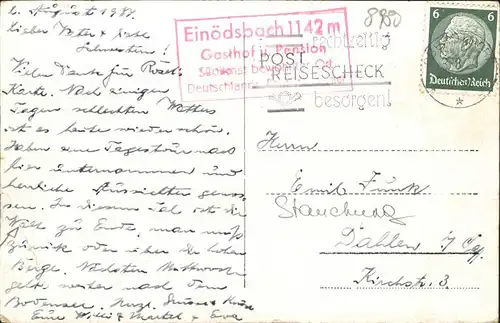 6. August 1937.
Lieber Vater & liebe
Schwestern!
Vielen Dank für Eure
Karte. Nach einigen
Tagen schlechten Wetters
ist es heute wieder schön.
Haben eine Tagestour nach
hier unternommen und
herrliche Aussichten genos-
sen. In diesem Tal ist die
Welt zu Ende, man muß
zurück oder über die hohen
Berge. Nächsten Mittwoch
geht weiter nach dem
Bodensee. Herzl. Grüsse & Küsse
Eure Willi & Martel & Eva
Einödsbach 1142 m
Gasthof u. Pension
Südlichst bewohnter Ort
Deutschlands
rechtzeitig
POST
REISESCHECK
besorgen!
6 6
Deutsches Reich
Herrn
Emil Funk
Dahlen
Kirchstr. 3